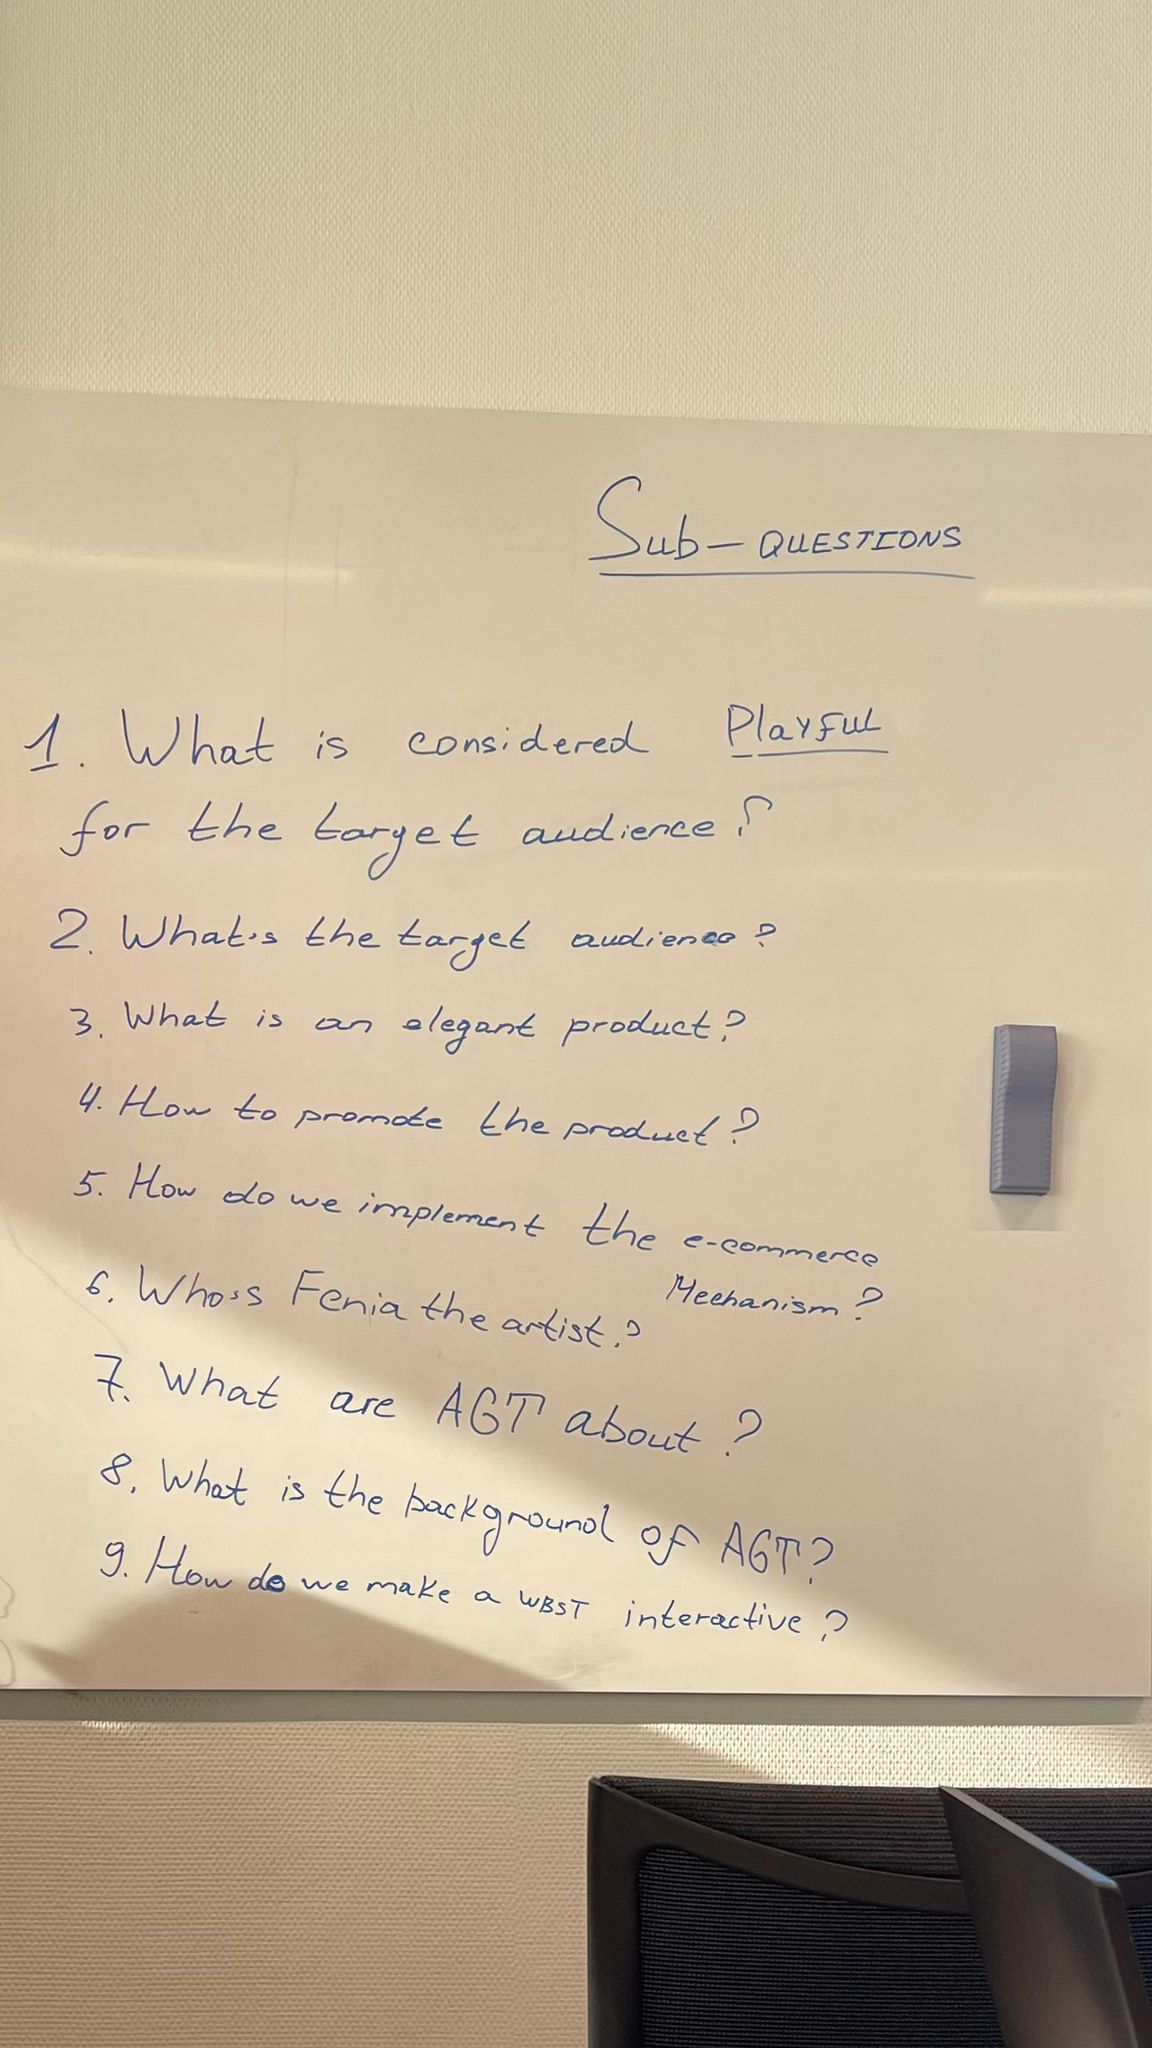 Sub-QUESTIONS
1. What is considered Playful
for the target audience?
2. What's the target audience?
3. What is an elegant product?
4. How to promote the product?
5. How do we implement the e-commerce
Mechanism?
6. Who's Fenia the artist?
7. What are AGT about?
8. What is the background of AGT?
9. How do we make a WBST interactive?